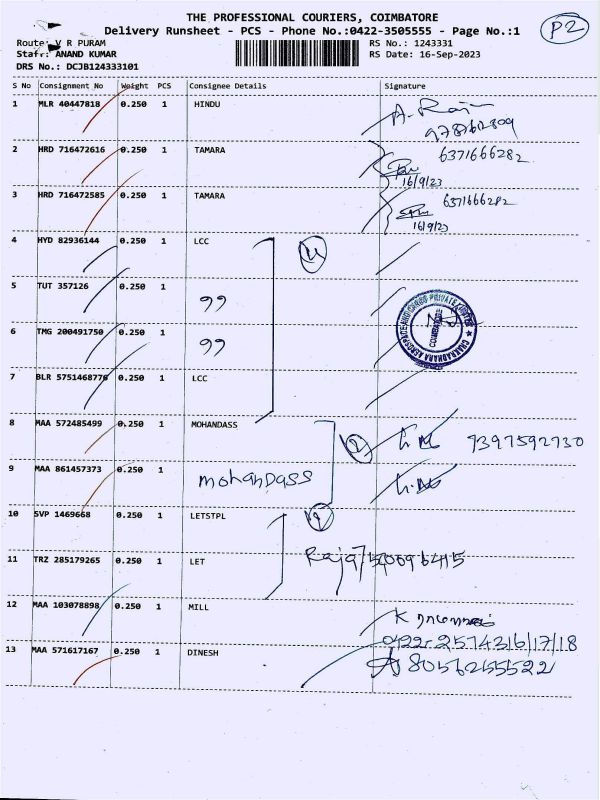 THE PROFESSIONAL COURIERS, COIMBATORE
P2
Delivery Runsheet - PCS - Phone No.:0422-3505555 - Page No.:1
Route: V R PURAM RS No.: 1243331
Staff: ANAND KUMAR RS Date: 16-Sep-2023
DRS No.: DCJB124333101
S No Consignment No Weight PCS Consignee Details Signature
1 MLR 40447818 0.250 1 HINDU
2 HRD 716472616 0.250 1 TAMARA 6371666282
16/9/23
3 HRD 716472585 0.250 1 TAMARA 6371666282
16/9/23
4 HYD 82936144 0.250 1 LCC
5 TUT 357126 0.250 1
6 TMG 200491750 0.250 1
COIMBATORE
7 BLR 5751468776 0.250 1 LCC
8 MAA 572485499 0.250 1 MOHANDASS 9397592730
9 MAA 861457373 0.250 1 mohanDass
10 SVP 1469668 0.250 1 LETSTPL
11 TRZ 285179265 0.250 1 LET
12 MAA 103078898 0.250 1 MILL
0422-2574316/17/18
13 MAA 571617167 0.250 1 DINESH 8056255522